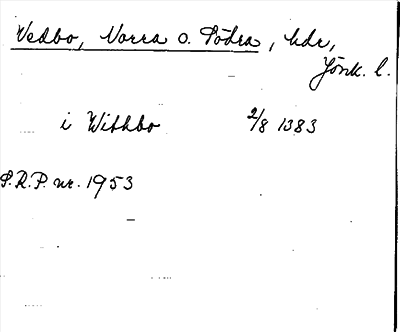 Vedbo, Norra o. Södra, hdr,
Jönk. l.
i Withbo 2/8 1383
S.R.P. nr. 1953